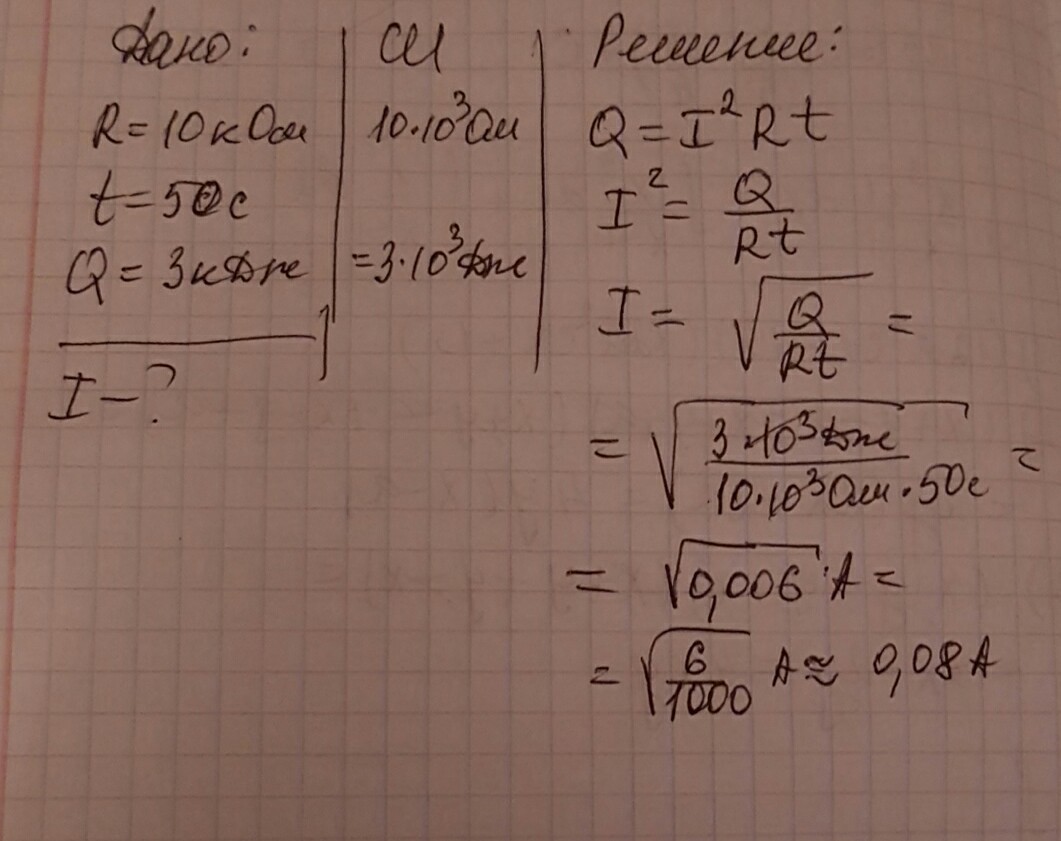 Дано:
R = 10 кОм
t = 50 с
Q = 3 кДж
I – ?
СИ
10·10³ Ом
= 3·10³ Дж
Решение:
Q = I² R t
I² = Q / Rt
I = √(Q / Rt) =
= √(3·10³ Дж / 10·10³ Ом · 50 с) =
= √0,006 · А =
= √(6 / 1000) А ≈ 0,08 А